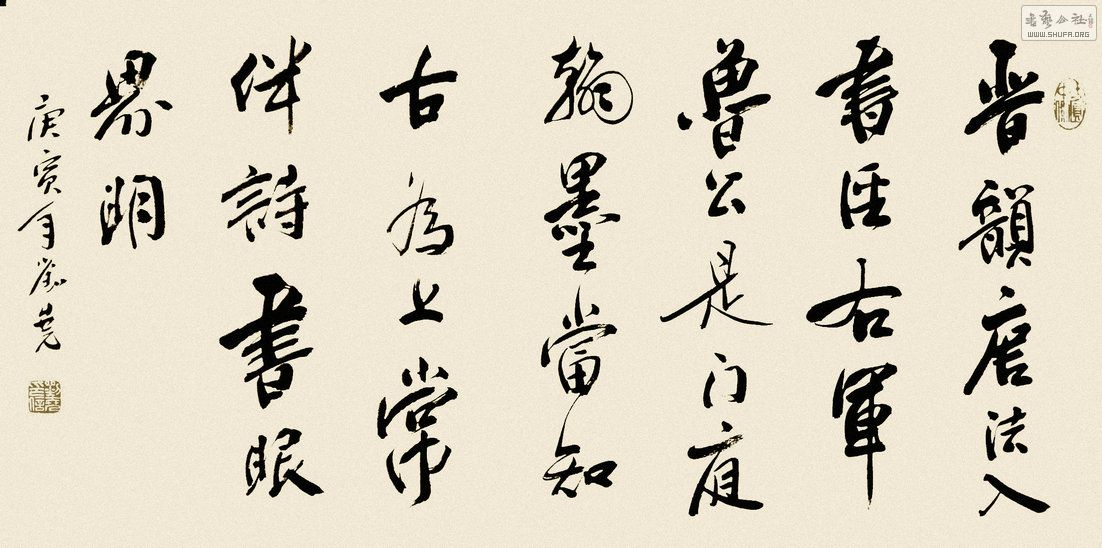 晋韻唐法入
書匡右軍
魯公是门庭
翰墨當知
古為上常
伴詩書眼
界明
庚寅年
書藝公社
WWW.SHUFA.ORG